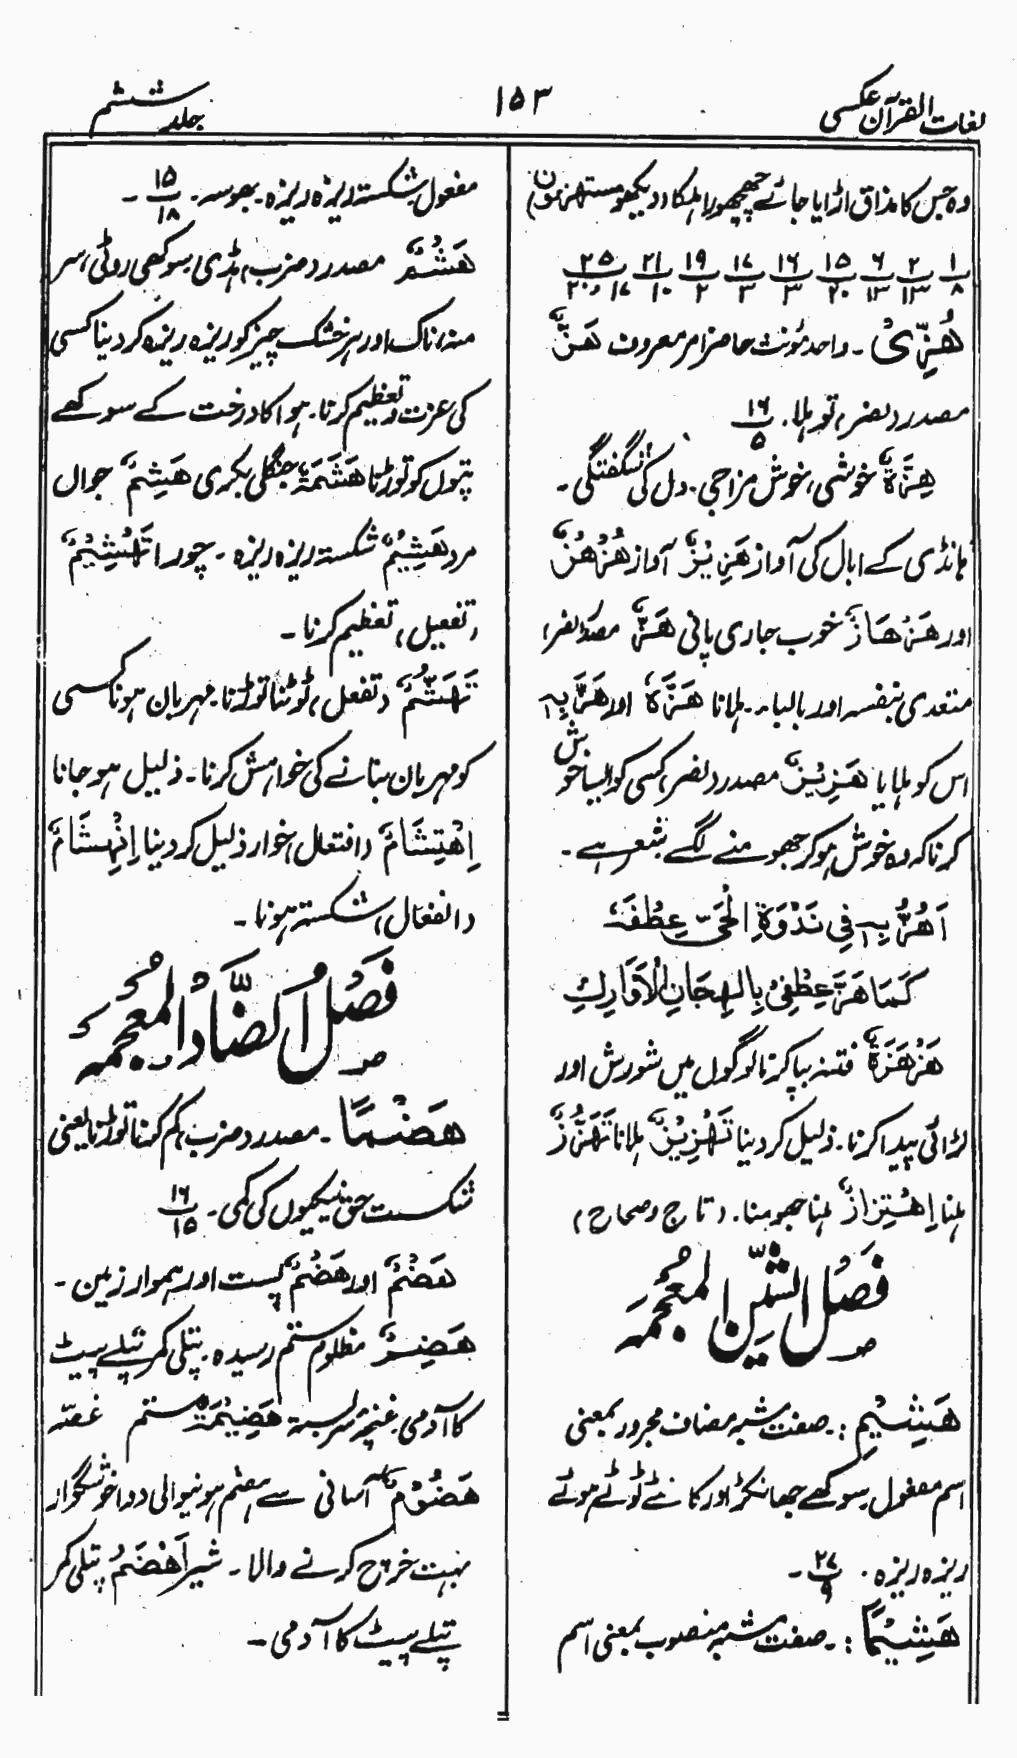 لغات القرآن عکسی
۱۵۳
جلد ششم
وہ جس کا مذاق اڑایا جائے چھچھورا ہلکا (دیکھو مستہزءون)
۱/۸ ۲/۱۳ ۶/۱۳ ۱۵/۲۰ ۱۶/۳ ۱۷/۳ ۱۹/۲ ۲۱/۱۰ ۲۵/۱۷ و ۲۰
هُزِّیْ ۔ واحد مؤنث حاضر امر معروف هَزٌّ
مصدر (نصر) تو ہلا۔ ۱۶/۵
هِزَّةٌ خوشی، خوش مزاجی۔ دل کی شگفتگی ۔
ہانڈی کے ابال کی آواز هَزِيْزٌ آواز هُزْهُزٌ
اور هَزْهَازٌ خوب جاری پانی هَزٌّ مصدر (نصر)
متعدی بنفسہ اور بالباء۔ ہلانا هَزَّهٗ اور هَزَّ بِهٖ
اس کو ہلایا هَزِيْزٌ مصدر (نصر) کسی کو ایسا خوش
کرنا کہ وہ خوش ہو کر جھومنے لگے شعر ہے ۔
اَهُزُّ بِهٖ فِیْ نَدْوَةِ الْحَیِّ عِطْفَهٗ
كَمَا هَزَّ عِطْفِیْ بِالْهِجَانِ الْاَوَارِكِ
هَزْهَزَةٌ فتنہ بپا کرنا لوگوں میں شورش اور
لڑائی پیدا کرنا۔ ذلیل کر دینا تَهْزِيْزٌ ہلانا تَهَزُّزٌ
ہلنا اِهْتِزَازٌ ہلنا جھومنا۔ (تاج و صحاح)
فَصْلُ الشِّيْنِ الْمُعْجَمَةِ
هَشِيْمِ :۔ صفت مشبہ مضاف مجرور بمعنی
اسم مفعول سوکھے جھانکڑ اور کانٹے ٹوٹے ہوئے
ریزہ ریزہ ۔ ۲۷/۹ ۔
هَشِيْمًا :۔ صفت مشبہ منصوب بمعنی اسم
مفعول شکستہ ریزہ ریزہ۔ بھوسہ۔ ۱۵/۱۸ ۔
هَشْمٌ مصدر (ضرب) ہڈی، سوکھی روٹی، سر
منہ، ناک اور ہر خشک چیز کو ریزہ ریزہ کر دینا کسی
کی عزت و تعظیم کرنا۔ ہوا کا درخت کے سوکھے
پتوں کو توڑنا هَشَمَةٌ جنگلی بکری هَشِمٌ جواں
مرد هَشِيْمٌ شکستہ ریزہ ریزہ ۔ چورا تَهْشِيْمٌ
(تفعیل) تعظیم کرنا ۔
تَهَشُّمٌ (تفعل) ٹوٹنا توڑنا۔ مہربان ہونا کسی
کو مہربان بنانے کی خواہش کرنا۔ ذلیل ہو جانا
اِهْتِشَامٌ (افتعال) خوار ذلیل کر دینا اِنْهِشَامٌ
(انفعال) شکستہ ہونا ۔
فَصْلُ الضَّادِ الْمُعْجَمَةِ
هَضْمًا ۔ مصدر (ضرب) کم کرنا توڑنا یعنی
شکست حق نیکیوں کی کمی۔ ۱۶/۱۵
هَضْمٌ اور هِضْمٌ پست اور ہموار زمین ۔
هَضِيْمٌ مظلوم ستم رسیدہ۔ پتلی کمر پتلے پیٹ
کا آدمی۔ غنچہ سربستہ هَضِيْمَةٌ ستم غصّہ
هَضُوْمٌ آسانی سے ہضم ہونیوالی دوا خوشگوار
بہت خرچ کرنے والا ۔ شیر اَهْضَمُ پتلی کمر
پتلے پیٹ کا آدمی ۔